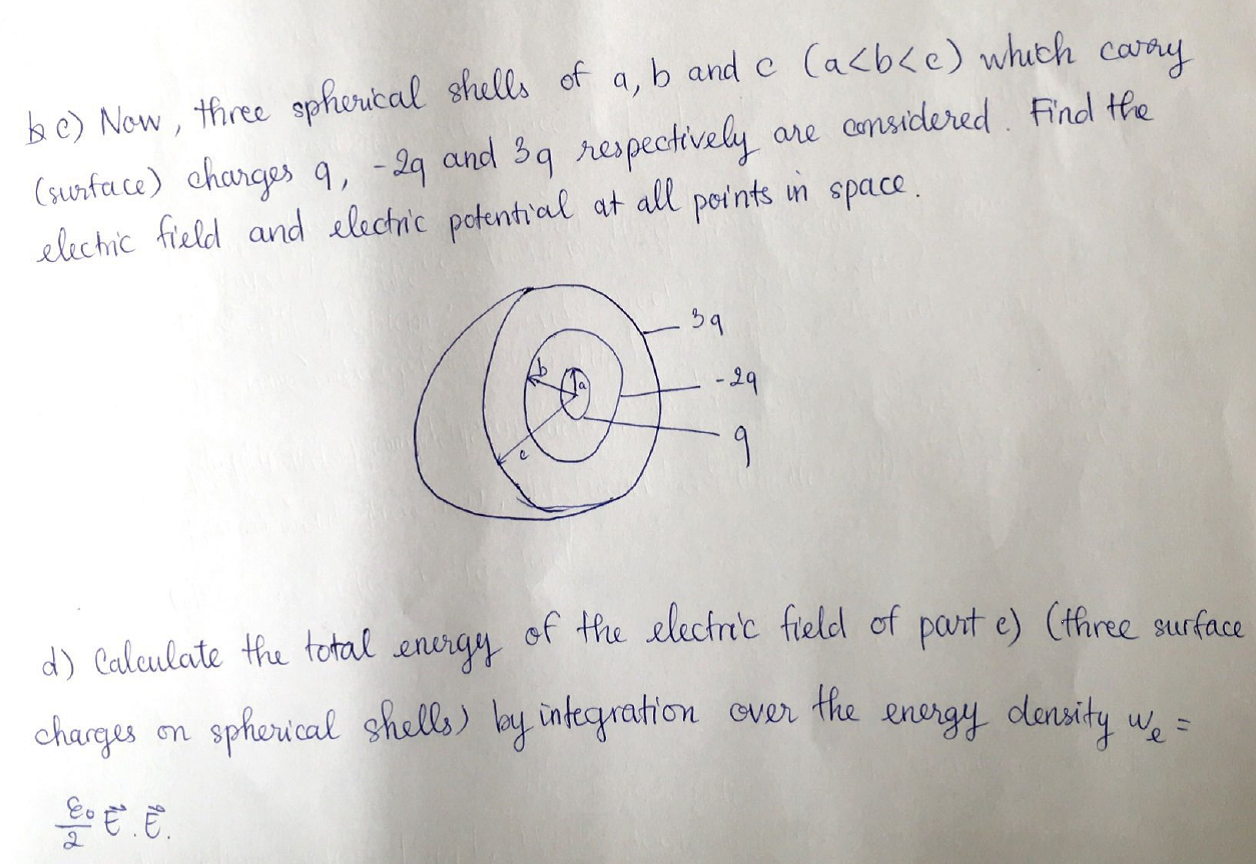 c) Now, three spherical shells of a, b and c (a<b<c) which carry
(surface) charges q, -2q and 3q respectively are considered. Find the
electric field and electric potential at all points in space.
3q
b
a
-2q
c
q
d) Calculate the total energy of the electric field of part c) (three surface
charges on spherical shells) by integration over the energy density wₑ =
ε₀/2 E⃗.E⃗.